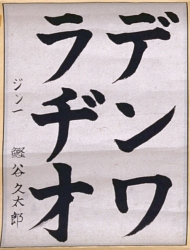 デンワ
ラヂオ
ジン一
谷久太郎